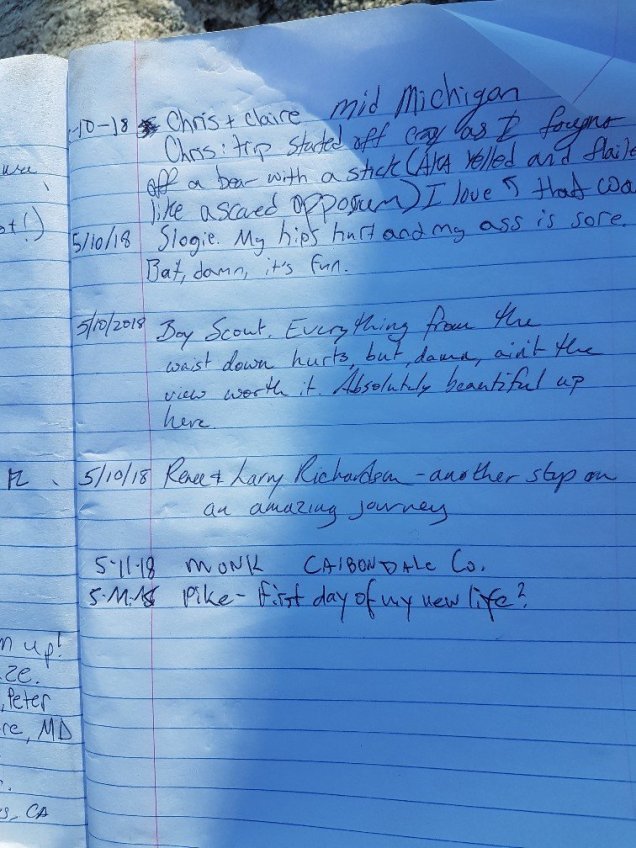 -10-18 Chris + Claire mid Michigan
Chris: trip started off crazy as I fought
off a bear with a stick (AKA Yelled and flaile
like a scared oppossum) I love that
5/10/18 Slogie. My hips hurt and my ass is sore.
But, damn, it's fun.
5/10/2018 Boy Scout. Everything from the
waist down hurts, but, damn, ain't the
view worth it. Absolutely beautiful up
here.
FL
5/10/18 Renee & Larry Richardson - another step on
an amazing journey
5-11-18 MONK CARBONDALE Co.
5-11-18 Pike - first day of my new life?
n up!
ze.
, Peter
re, MD
s, CA